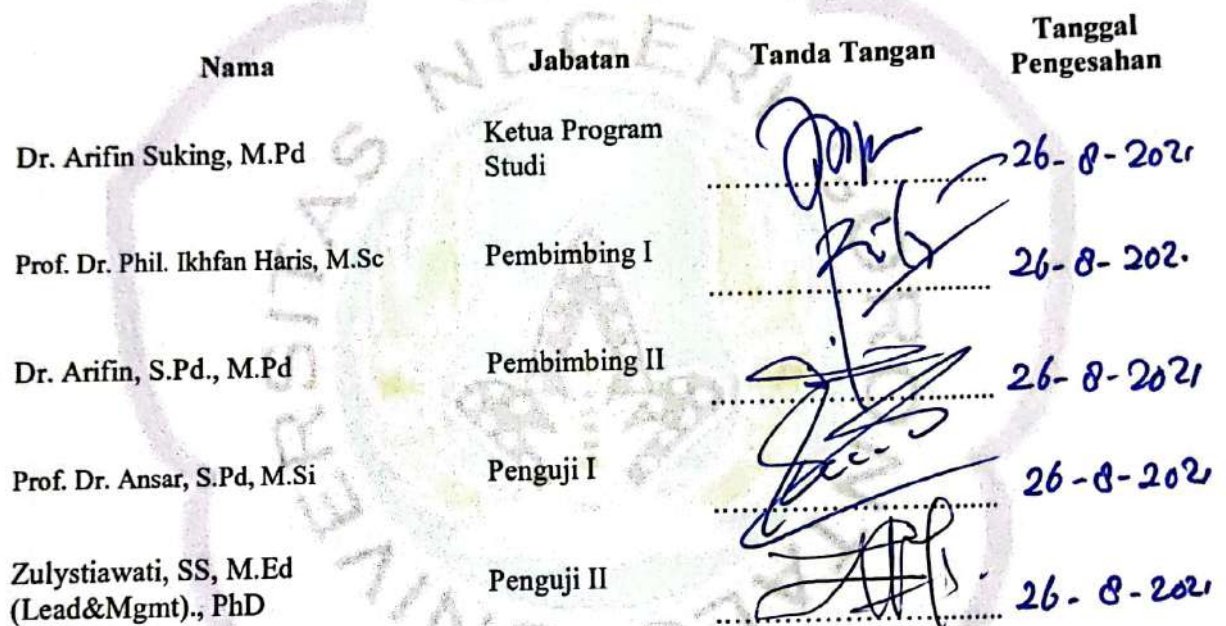 Nama Jabatan Tanda Tangan Tanggal Pengesahan
Dr. Arifin Suking, M.Pd Ketua Program Studi 26-8-2021
Prof. Dr. Phil. Ikhfan Haris, M.Sc Pembimbing I 26-8-202.
Dr. Arifin, S.Pd., M.Pd Pembimbing II 26-8-2021
Prof. Dr. Ansar, S.Pd, M.Si Penguji I 26-8-2021
Zulystiawati, SS, M.Ed Penguji II 26-8-2021
(Lead&Mgmt)., PhD